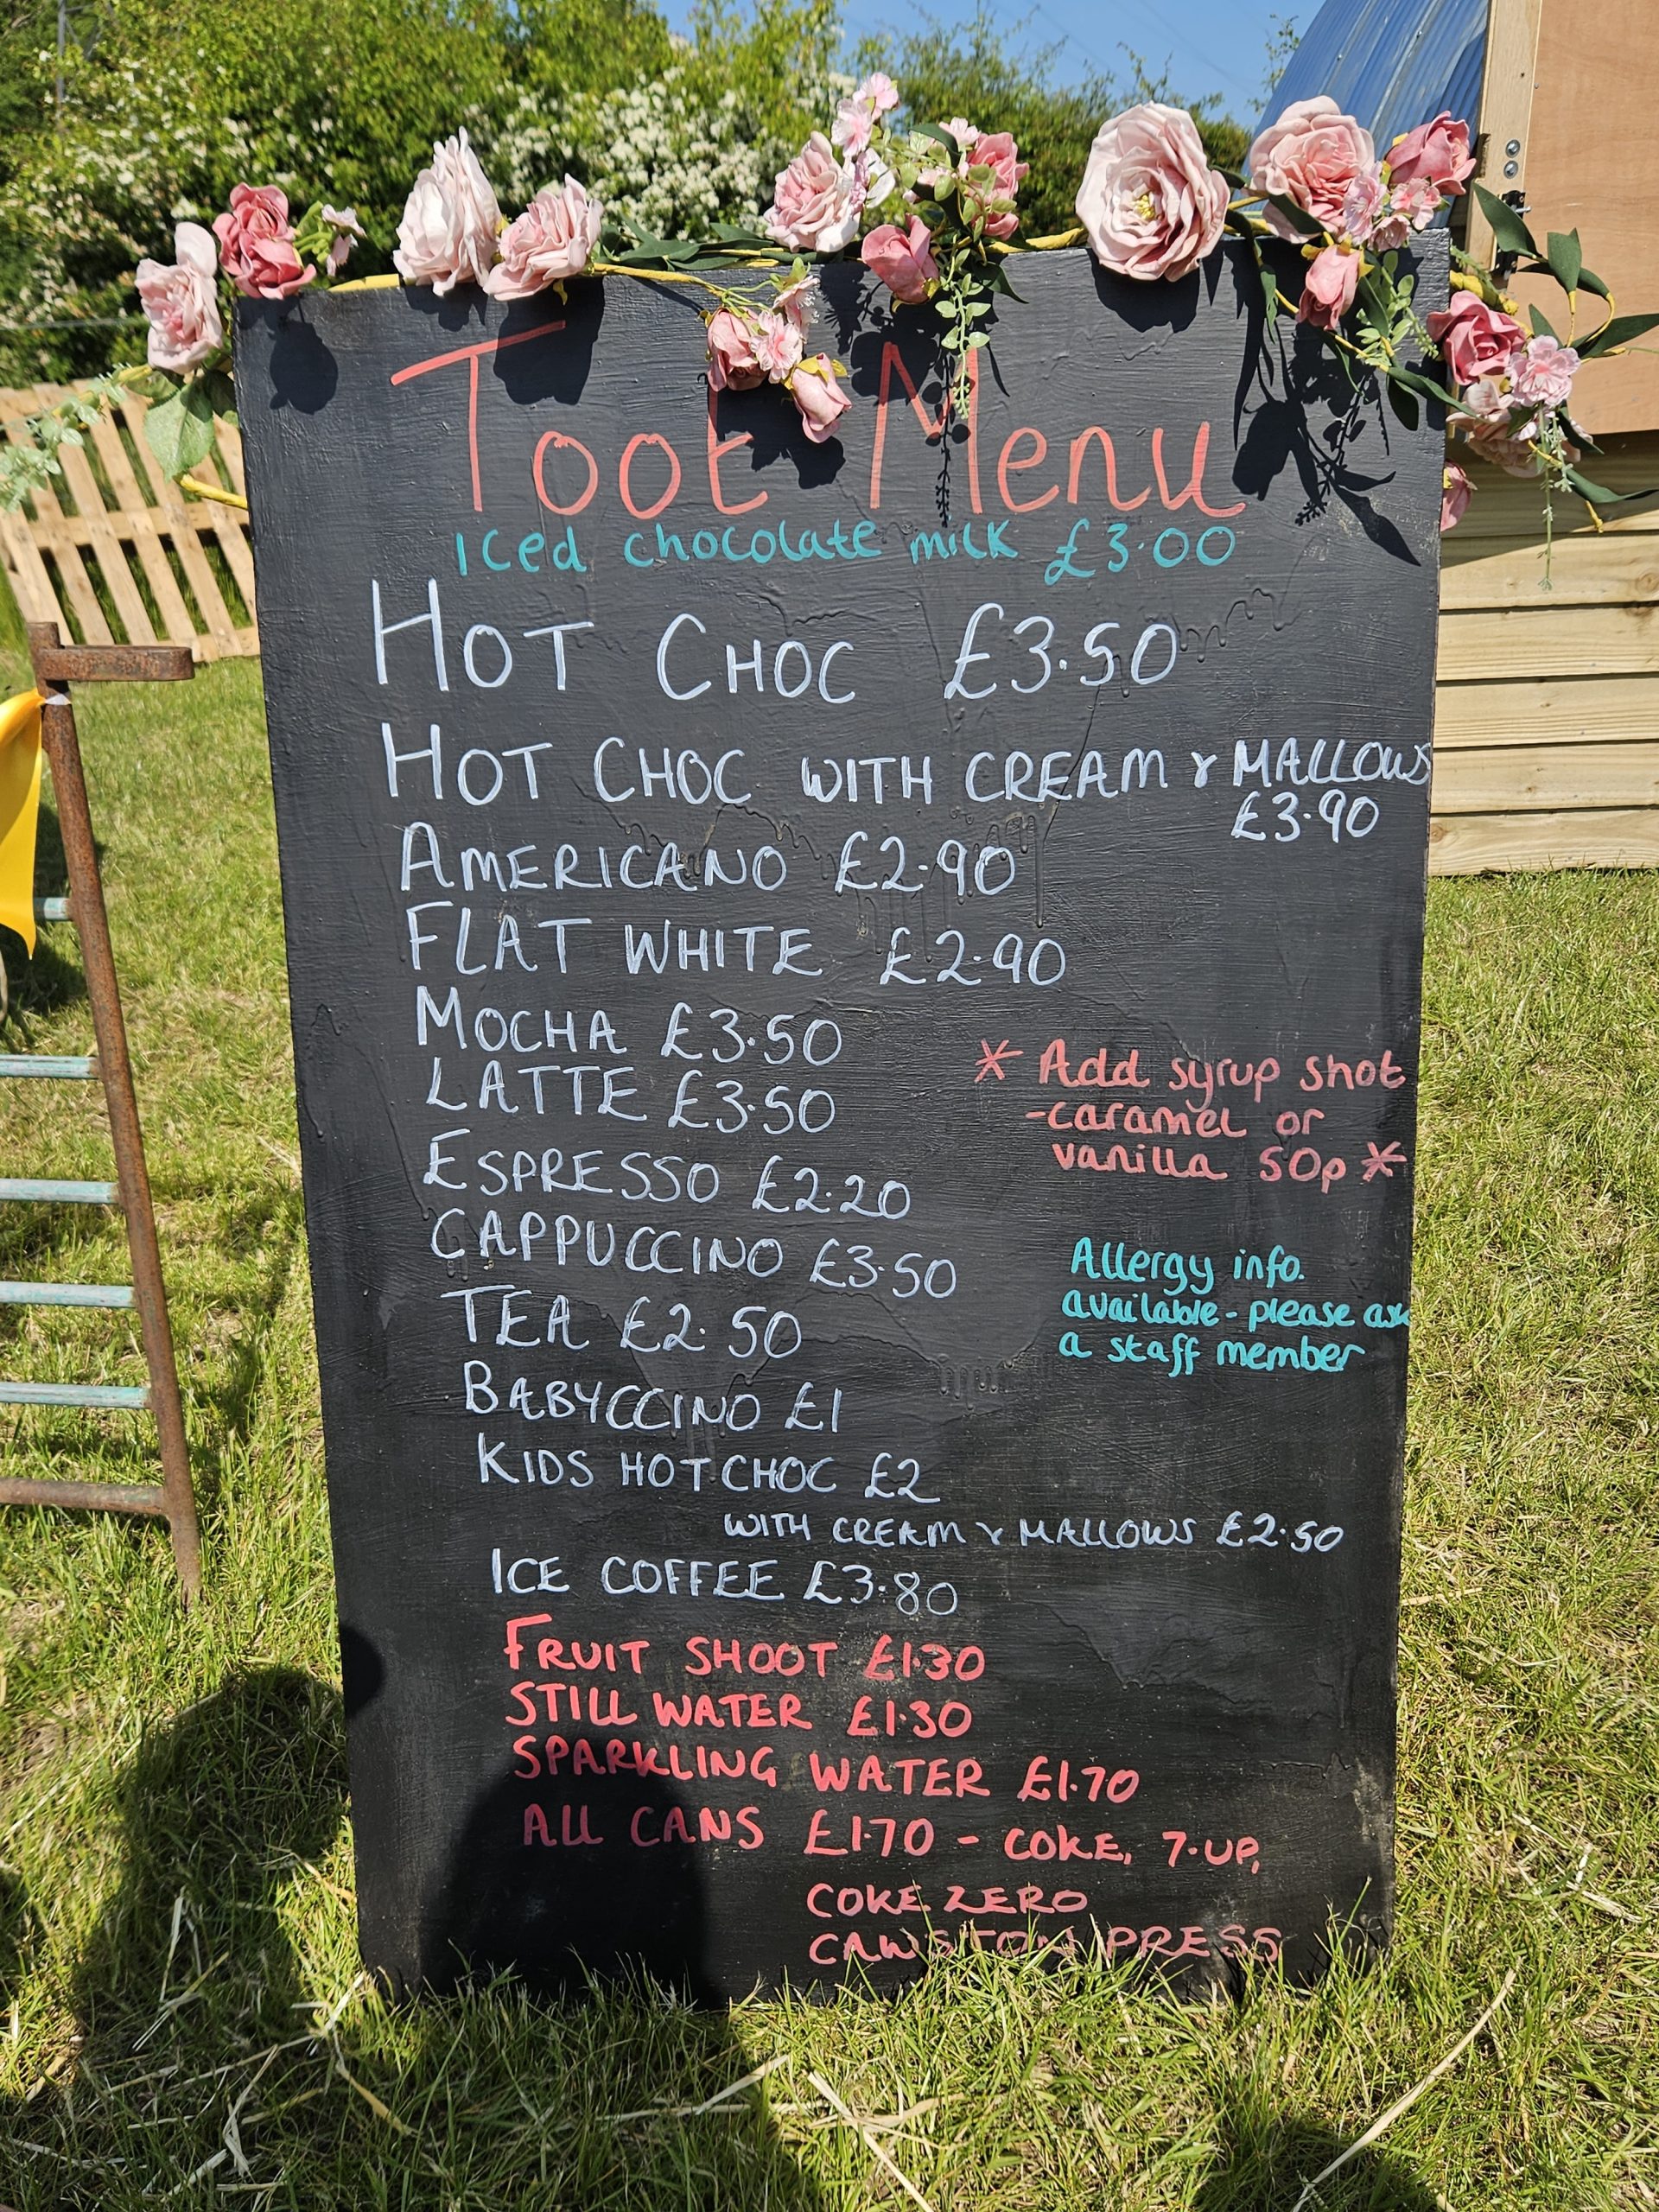 Toot Menu
Iced chocolate milk £3.00
HOT CHOC £3.50
HOT CHOC WITH CREAM & MALLOWS
£3.90
AMERICANO £2.90
FLAT WHITE £2.90
MOCHA £3.50
LATTE £3.50
* Add syrup shot
-caramel or
vanilla 50p *
ESPRESSO £2.20
CAPPUCCINO £3.50
TEA £2.50
Allergy info.
available - please ask
a staff member
BABYCCINO £1
KIDS HOT CHOC £2
WITH CREAM & MALLOWS £2.50
ICE COFFEE £3.80
FRUIT SHOOT £1.30
STILL WATER £1.30
SPARKLING WATER £1.70
ALL CANS £1.70 - COKE, 7-UP,
COKE ZERO
CAWSTON PRESS